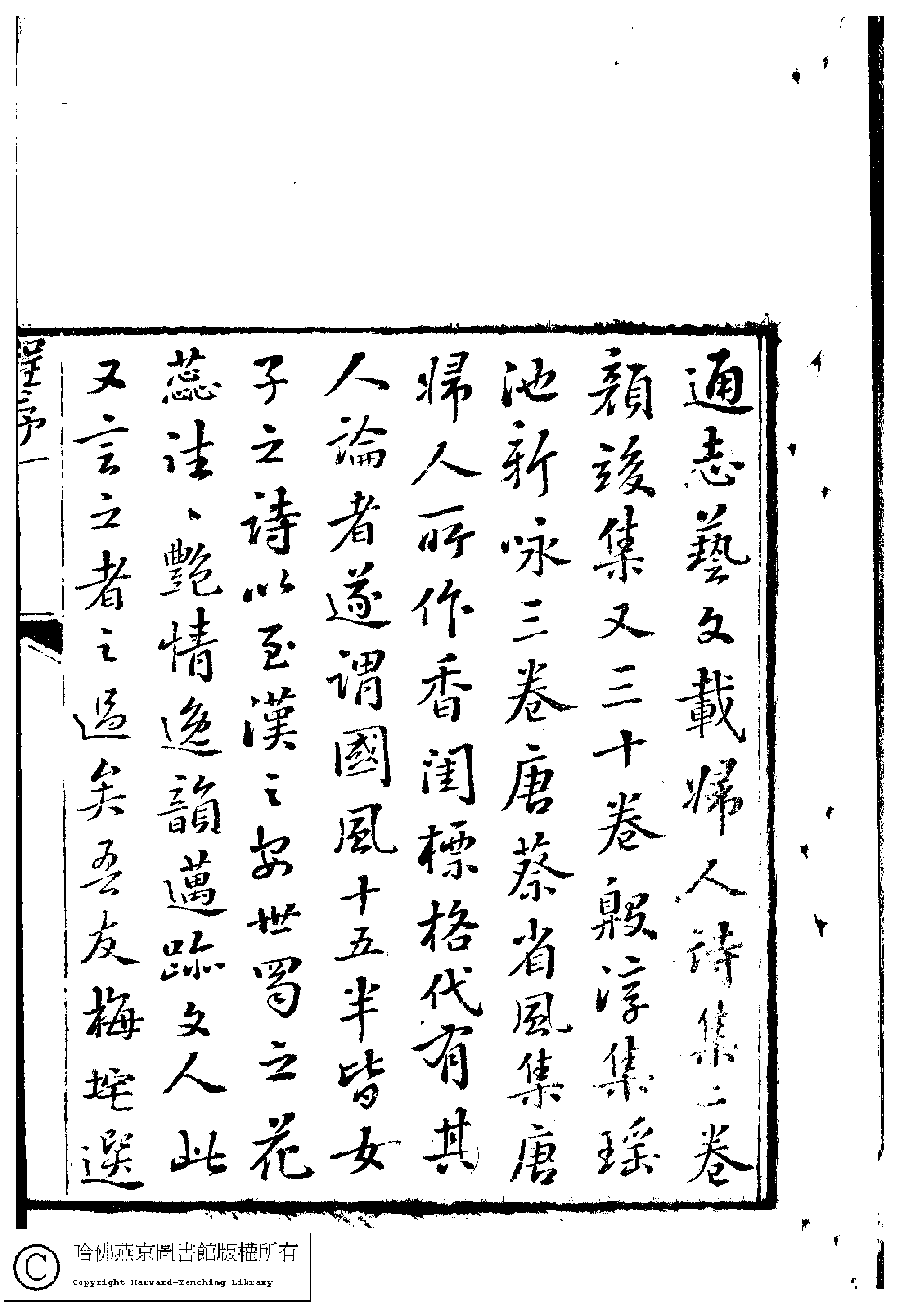 通志藝文載婦人詩集二卷
顏竣集又三十卷殷淳集瑶
池新咏三卷唐蔡省風集唐
婦人所作香閨標格代有其
人論者遂謂國風十五半皆女
子之詩以至漢之安世蜀之花
蕊往〻艷情逸韻邁跡文人此
又言之者之過矣吾友梅垞選
程序
一
哈佛燕京圖書館版權所有
Copyright Harvard-Yenching Library